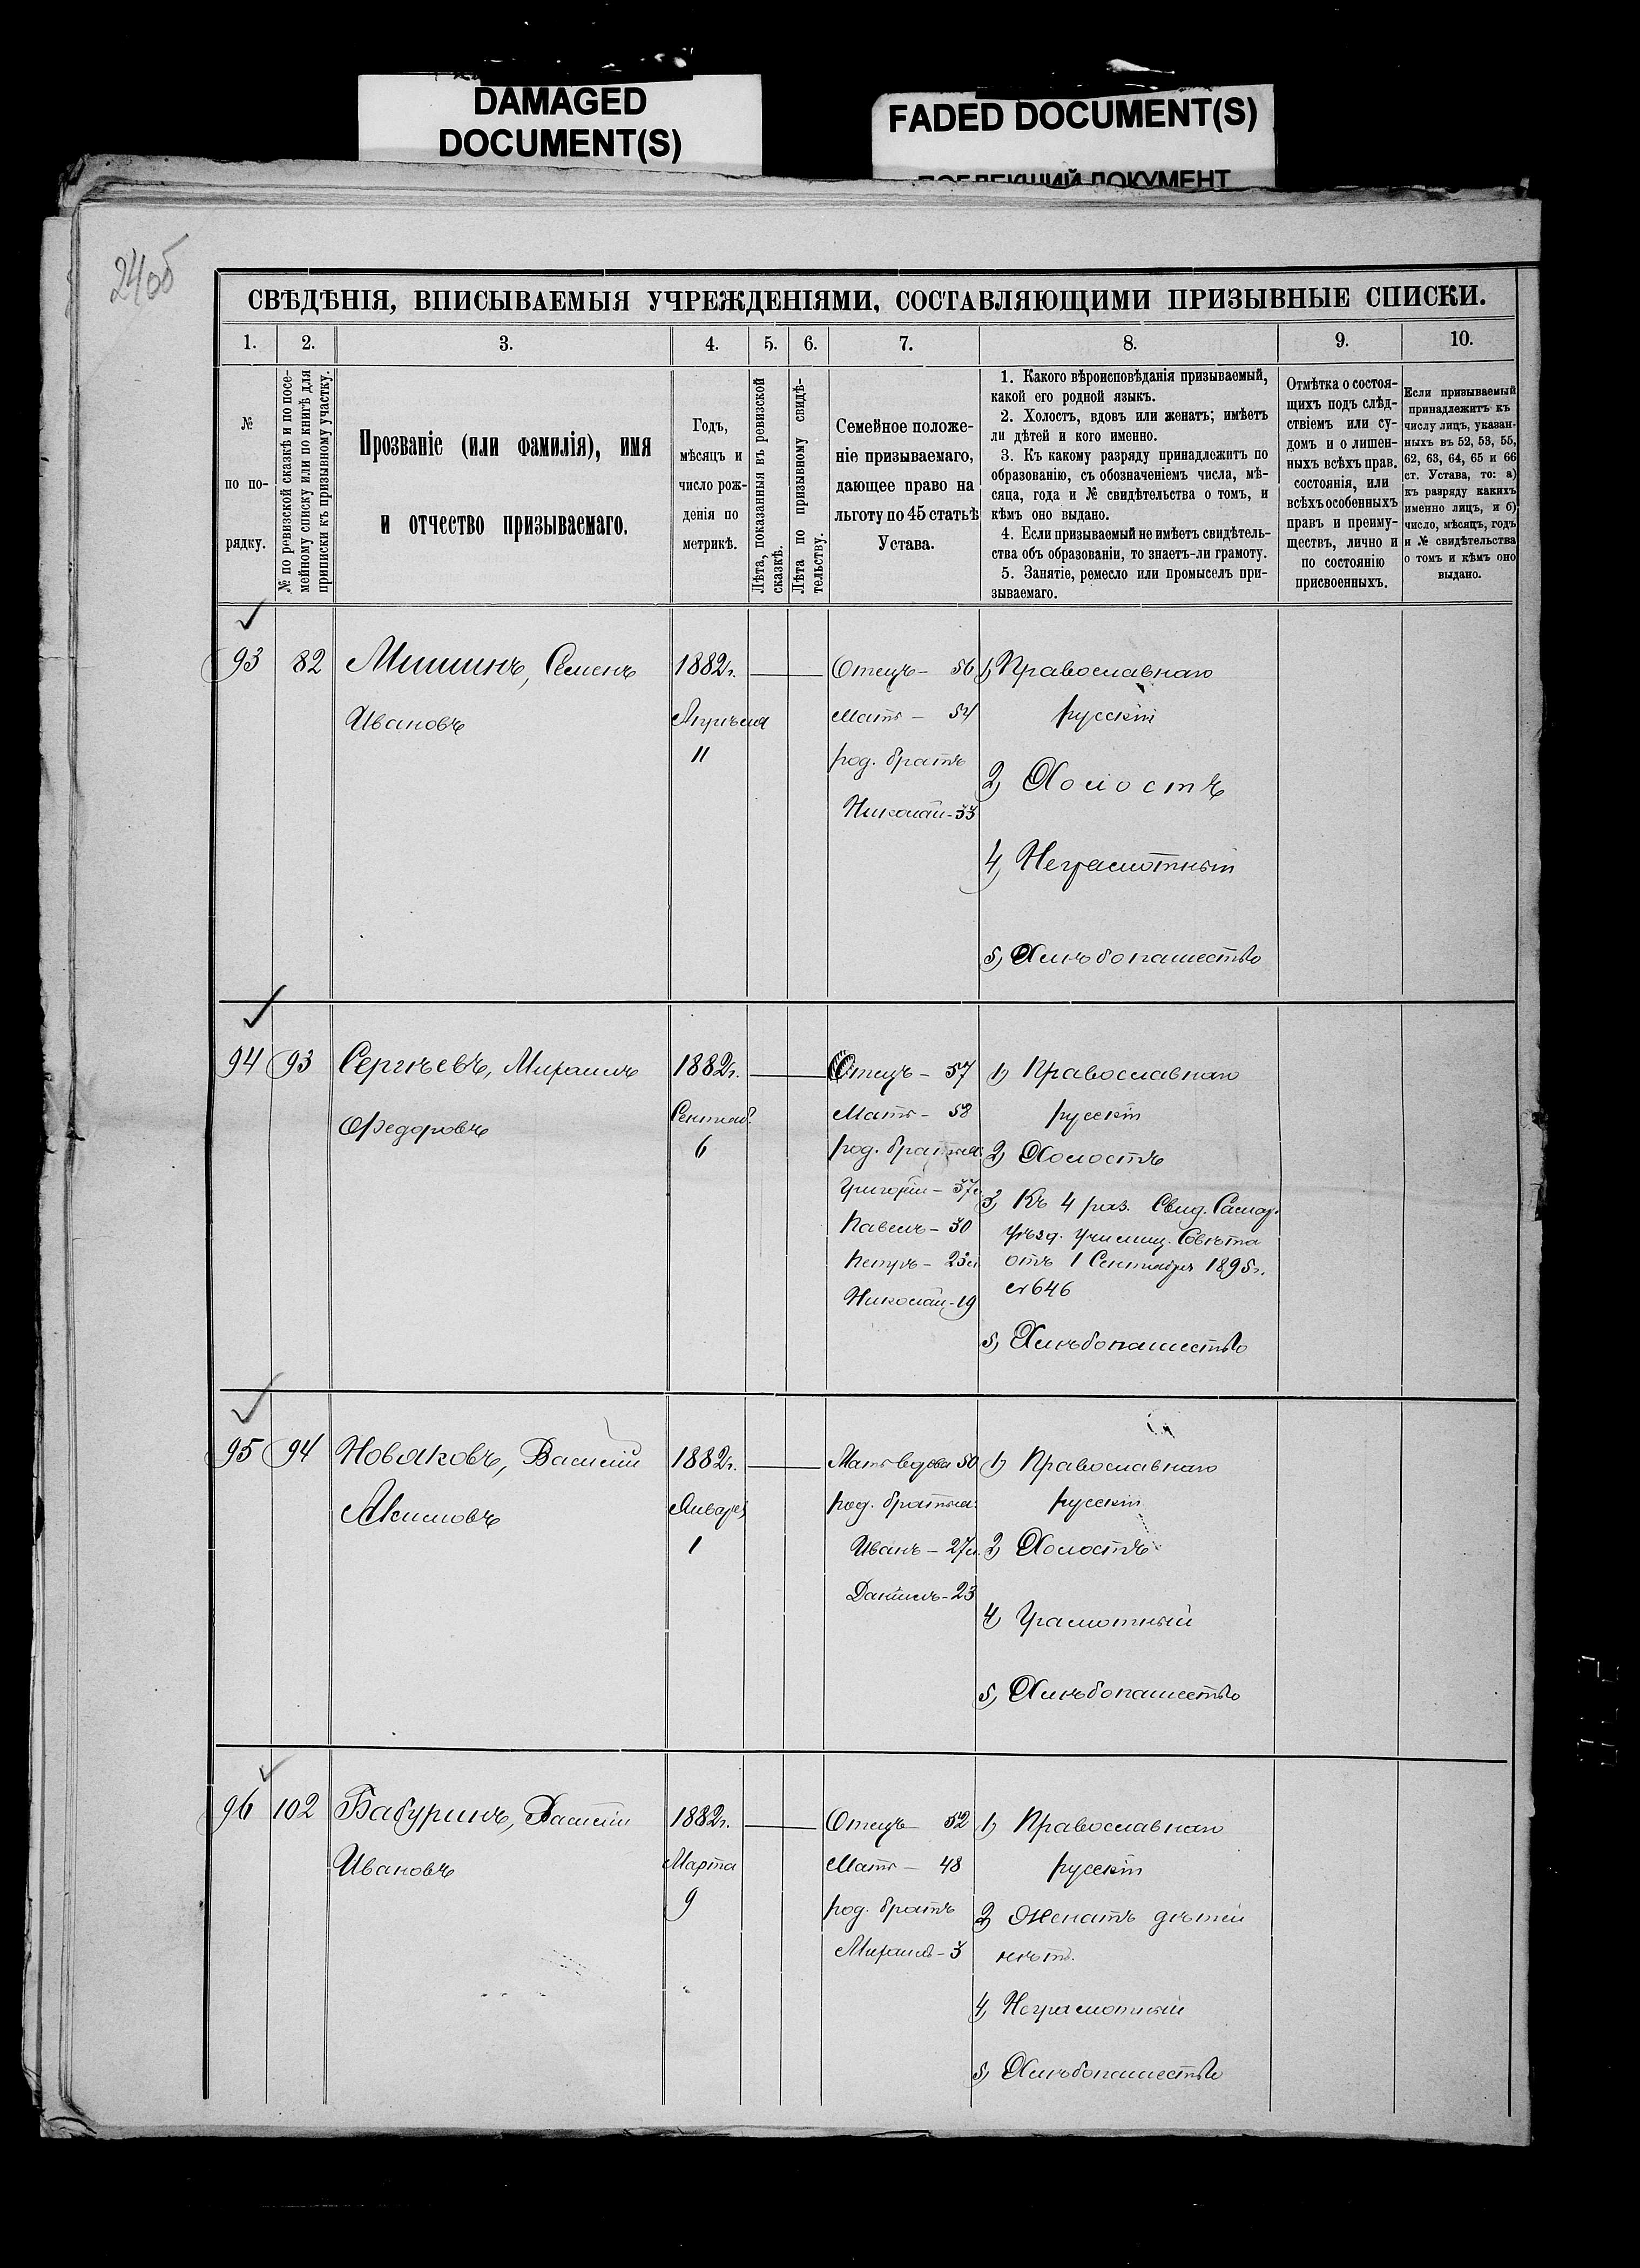 DAMAGED
DOCUMENT(S)
FADED DOCUMENT(S)
24об
СВѢДѢНІЯ, ВПИСЫВАЕМЫЯ УЧРЕЖДЕНІЯМИ, СОСТАВЛЯЮЩИМИ ПРИЗЫВНЫЕ СПИСКИ.
1. 2. 3. 4. 5. 6. 7. 8. 9. 10.
№
по по-
рядку.
№ по ревизской сказкѣ и по посе-
мейному списку или по книгѣ для
приписки къ призывному участку.
Прозваніе (или фамилія), имя
и отчество призываемаго.
Годъ,
мѣсяцъ и
число рож-
денія по
метрикѣ.
Лѣта, показанныя въ ревизской
сказкѣ.
Лѣта по призывному свидѣ-
тельству.
Семейное положе-
ніе призываемаго,
дающее право на
льготу по 45 статьѣ
Устава.
1. Какого вѣроисповѣданія призываемый,
какой его родной языкъ.
2. Холостъ, вдовъ или женатъ; имѣетъ
ли дѣтей и кого именно.
3. Къ какому разряду принадлежитъ по
образованію, съ обозначеніемъ числа, мѣ-
сяца, года и № свидѣтельства о томъ, и
кѣмъ оно выдано.
4. Если призываемый не имѣетъ свидѣтель-
ства объ образованіи, то знаетъ-ли грамоту.
5. Занятіе, ремесло или промыселъ при-
зываемаго.
Отмѣтка о состоя-
щихъ подъ слѣд-
ствіемъ или су-
домъ и о лишен-
ныхъ всѣхъ прав.
состоянія, или
всѣхъ особенныхъ
правъ и преиму-
ществъ, лично и
по состоянію
присвоенныхъ.
Если призываемый
принадлежитъ къ
числу лицъ, указан-
ныхъ въ 52, 53, 55,
62, 63, 64, 65 и 66
ст. Устава, то: а)
къ разряду какихъ
именно лицъ, и б)
число, мѣсяцъ, годъ
и № свидѣтельства
о томъ и кѣмъ оно
выдано.
93 82
Мишинъ, Семенъ
Ивановъ
1882г.
Апрѣля
11
Отецъ – 56
Мать – 54
род. братъ
Николай – 33
1) Православнаго
русскій
2) Холостъ
4) Неграмотный
5) Хлѣбопашество
94 93
Сергѣевъ, Михаилъ
Федоровъ
1882г.
Сентяб.
6
Отецъ – 57
Мать – 58
род. братья:
Григорій – 37
Павелъ – 30
Петръ – 23
Николай – 19
1) Православнаго
русскій
2) Холостъ
3) Къ 4 раз. Свид. Самар.
Уѣзд. Училищ. Совѣта
отъ 1 Сентября 1895г.
№646
5) Хлѣбопашество
95 94
Новаковъ, Василій
Акимовъ
1882г.
Января
1
Мать вдова 50
род. братья:
Иванъ – 27
Даніилъ – 23
1) Православнаго
русскій
2) Холостъ
4) Грамотный
5) Хлѣбопашество
96 102
Бабуринъ, Василій
Ивановъ
1882г.
Марта
9
Отецъ 52
Мать – 48
род. братъ
Михаилъ – 3
1) Православнаго
русскій
2) Женатъ дѣтей
нѣтъ.
4) Неграмотный
5) Хлѣбопашество